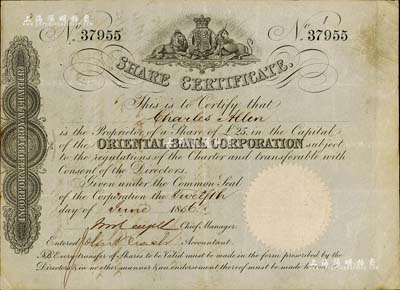 No. 37955
No. 37955
SHARE CERTIFICATE.
This is to Certify that
Charles Allen
is the Proprietor of a Share of £25, in the Capital
of the ORIENTAL BANK CORPORATION subject
to the regulations of the Charter and transferable with
Consent of the Directors.
Given under the Common Seal
of the Corporation the Twelfth
day of June 1856.
Chief Manager.
Entered Accountant.
N.B. Every transfer of Shares to be Valid must be made in the form prescribed by the
Directors, in no other manner & an endorsement thereof must be made hereon.
INCORPORATED BY ROYAL CHARTER